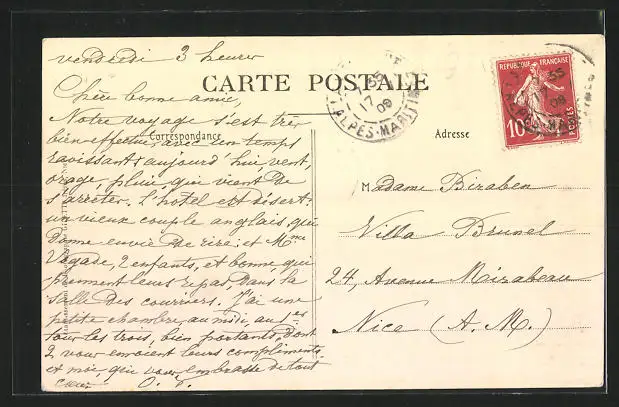 vendredi 3 heures
CARTE POSTALE
Chère bonne amie,
Notre voyage s'est très
bien effectué, avec un temps
ravissant; aujourd'hui vent,
orage, pluie qui vient de
s'arrêter. l'hôtel est désert:
un vieux couple anglais, qui
donne envie de rire; et Mme
Vagade, 2 enfants, et bonne qui
prennent leurs repas, dans la
salle des courriers. J'ai une
petite chambre au midi, au 1er
tous les trois, bien portants, dont
2 vous envoient leurs compliments
et moi, qui vous embrasse de tout
cœur.
Correspondance
Adresse
Madame Biraben
Villa Brunel
24, Avenue Mirabeau
Nice (A. M.)
REPUBLIQUE FRANÇAISE
10
POSTES
17
09
ALPES-MARITIMES